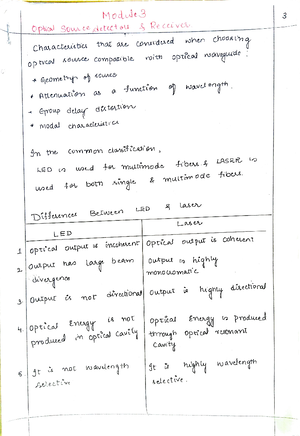 Module 3
3
Optical Source, detectors & Receiver
Characteristics that are considered when choosing
optical source compatible with optical waveguide:
* Geometry of source
* Attenuation as a function of wavelength.
* Group delay distortion
* Modal characteristics
In the common classification,
LED is used for multimode fibers & LASER is
used for both single & multimode fibers.
Differences Between LED & laser
LED
Laser
1 optical output is incoherent
Optical output is coherent
2. output has large beam
divergence
output is highly
monocromatic
3. output is not directional
output is highly directional
4. optical Energy is not
produced in optical cavity
optical Energy is produced
through optical resonant
cavity
5. It is not wavelength
selective
It is highly wavelength
selective.